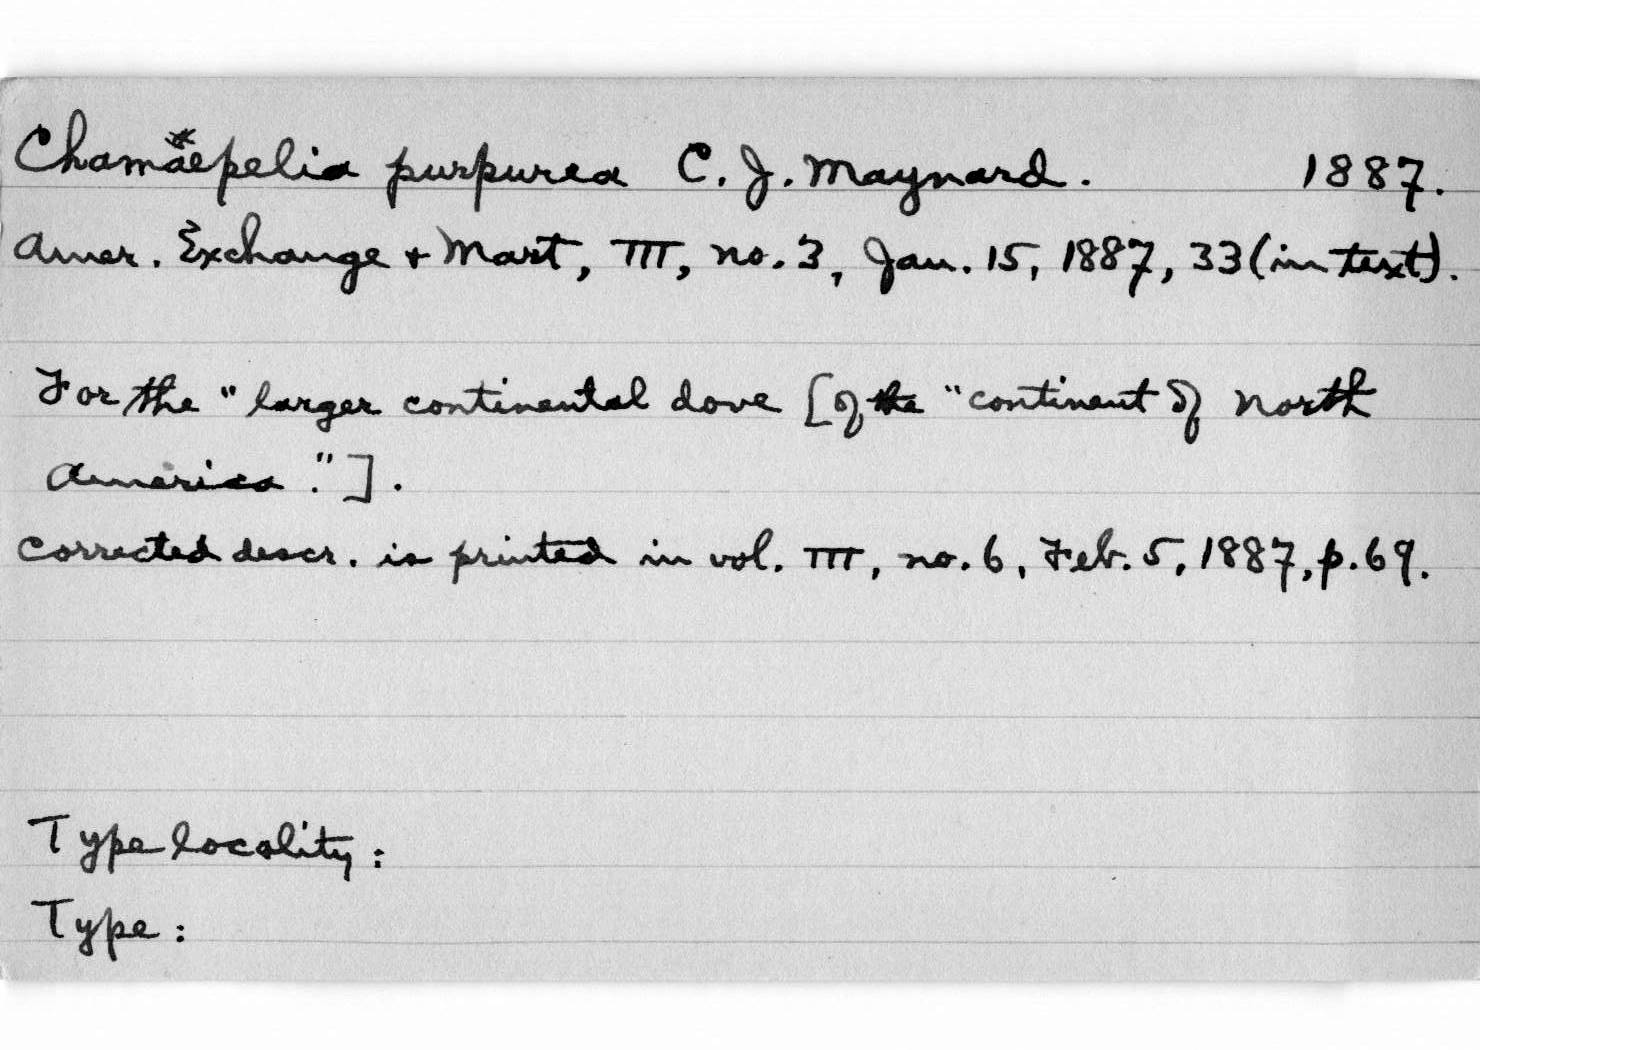 Chamaepelia purpurea C. J. Maynard. 1887.
Amer. Exchange + Mart, III, no. 3, Jan. 15, 1887, 33 (in text).
For the "larger continental dove [of the "continent of North
America."].
Corrected descr. is printed in vol. III, no. 6, Feb. 5, 1887, p. 69.
Type locality:
Type: